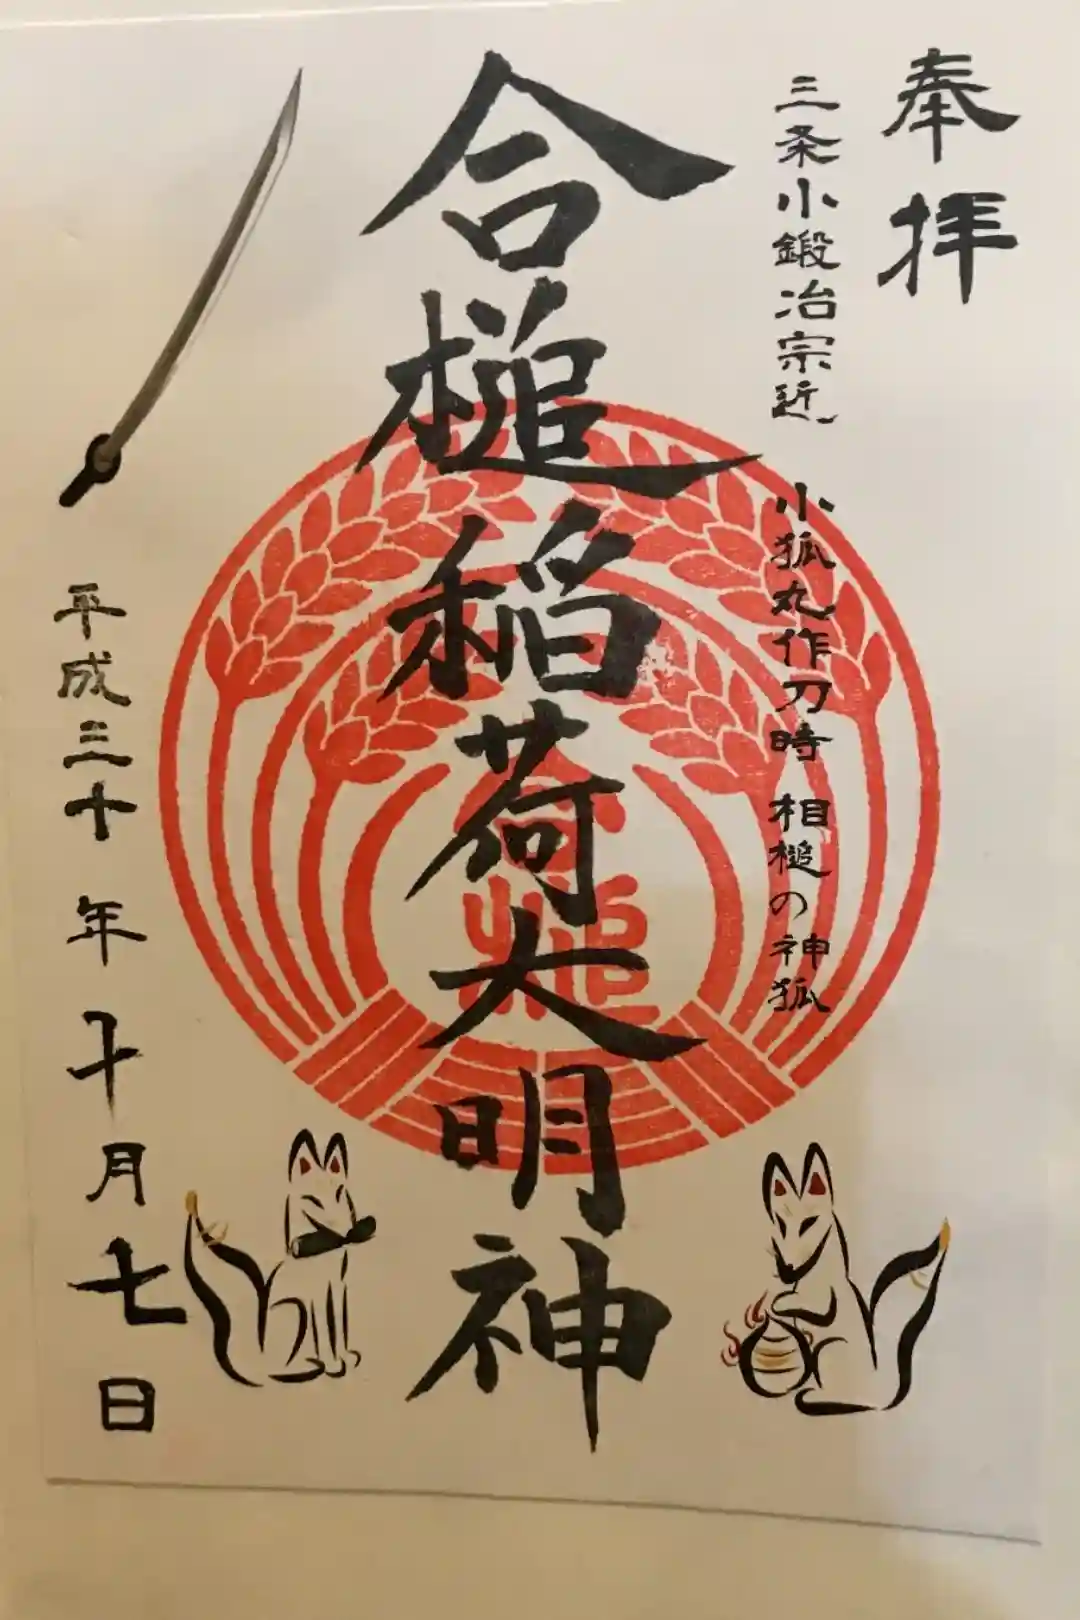 奉拝
三条小鍛冶宗近 小狐丸作刀時 相槌の神狐
合槌稲荷大明神
合槌
平成三十年十月七日